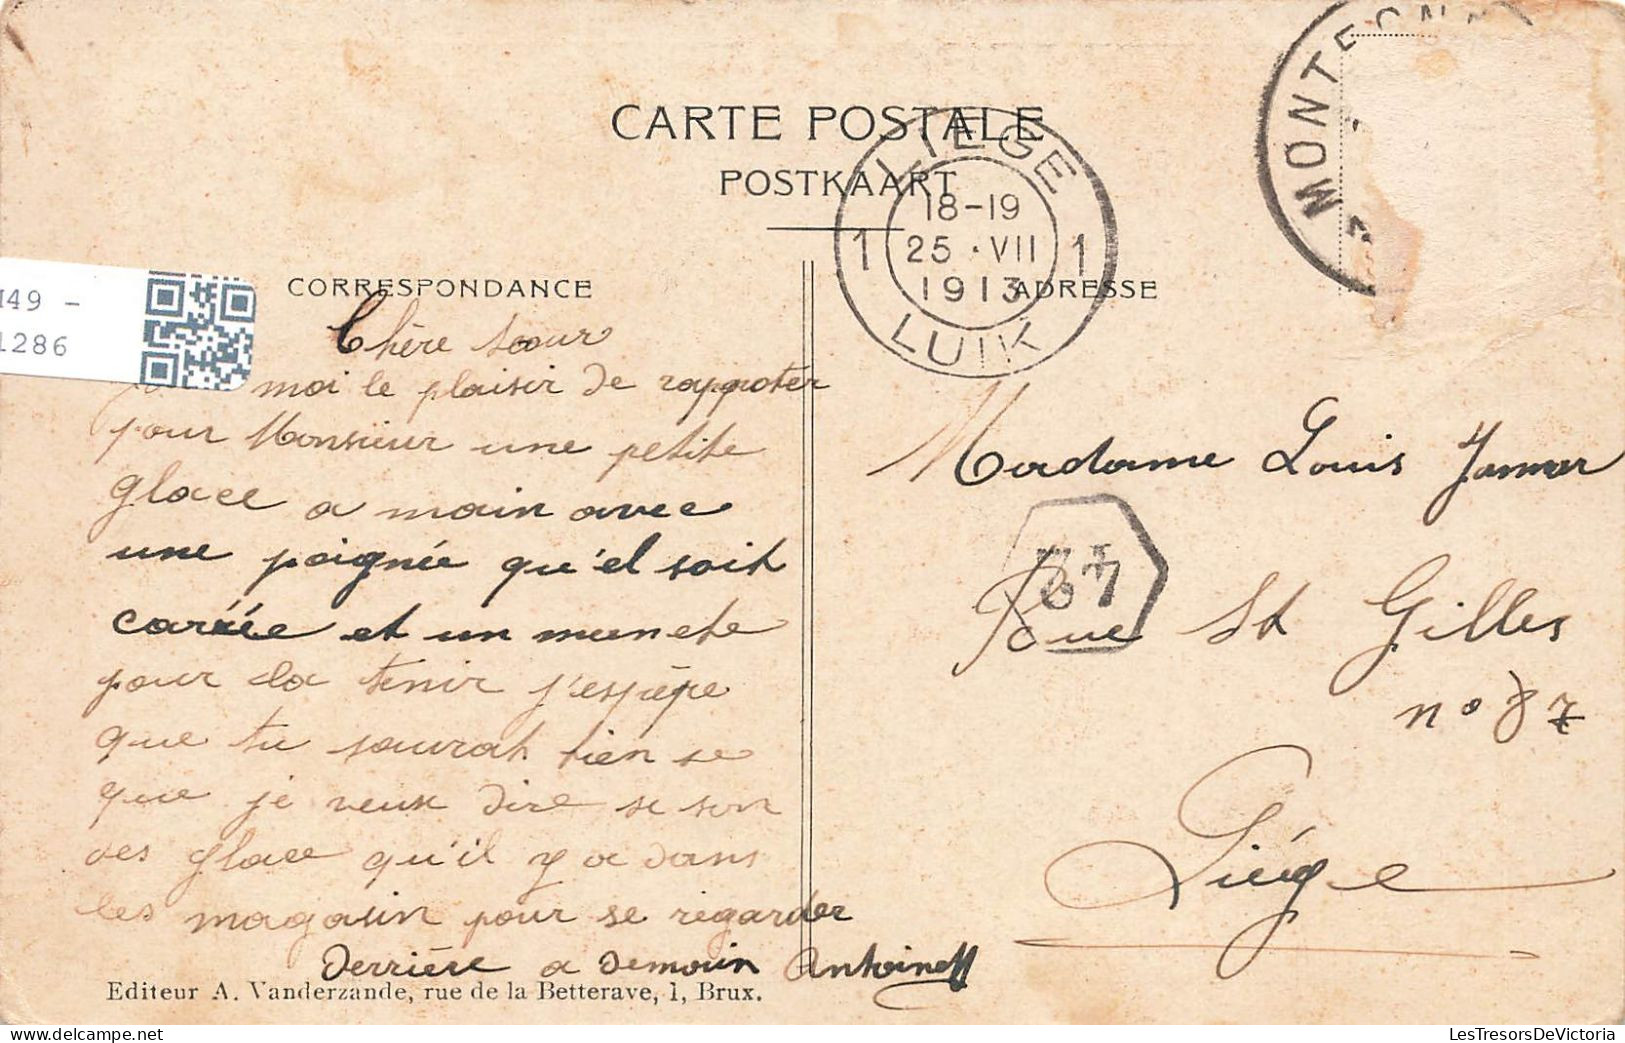 CARTE POSTALE
POSTKAART
LIEGE
18-19
1 25 · VII 1
1913
LUIK
MONTEGN
CORRESPONDANCE
ADRESSE
149 -
1286
Chère soeur
moi le plaisir de rappoter
pour Monsieur une petite
glace a main avec
une poignée qu'el soit
carrée et un manche
pour la tenir j'espère
que tu saurat bien se
que je veux dire se son
des glace qu'il y a dans
les magasin pour se regarder
derrière a demain Antoinett
Madame Louis
Rue St Gilles
n° 87
Liége
Editeur A. Vanderzande, rue de la Betterave, 1, Brux.
LesTresorsDeVictoria